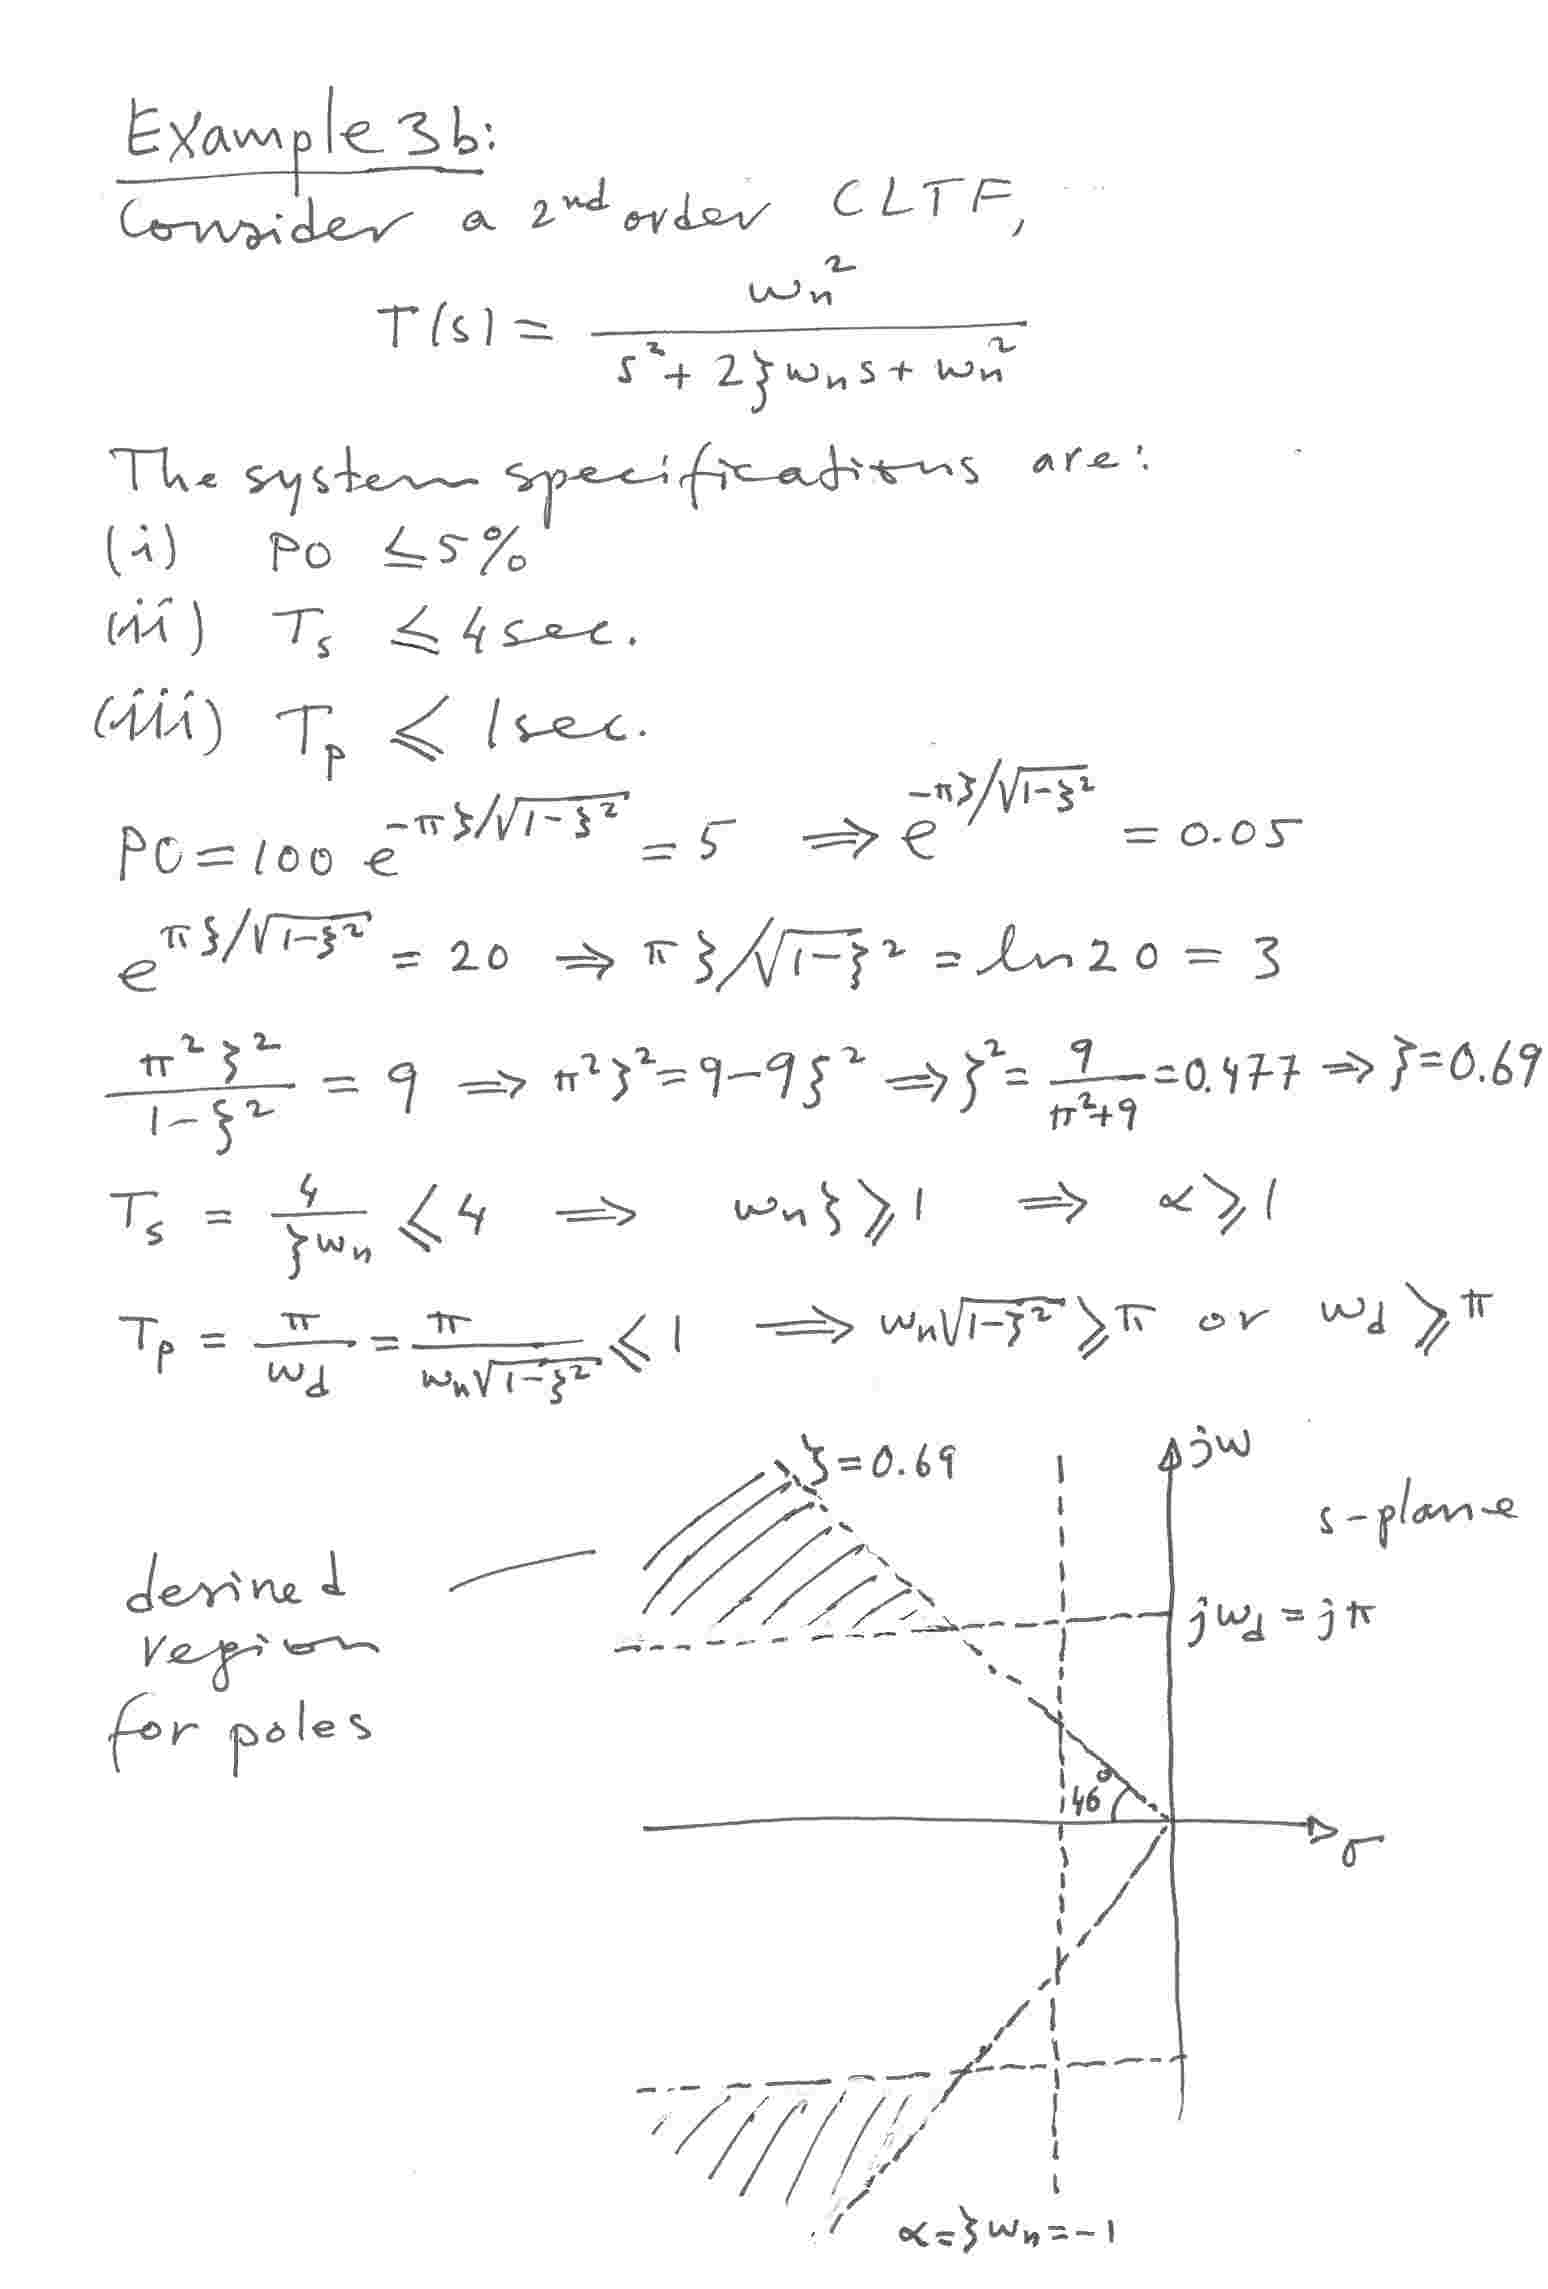 Example 3b:
Consider a 2nd order CLTF,
T(s) = ωn² / (s² + 2ξωns + ωn²)
The system specifications are:
(i) PO ≤ 5%
(ii) Ts ≤ 4 sec.
(iii) Tp ≤ 1 sec.
PO = 100 e^(-πξ/√(1-ξ²)) = 5 ⇒ e^(-πξ/√(1-ξ²)) = 0.05
e^(πξ/√(1-ξ²)) = 20 ⇒ πξ/√(1-ξ²) = ln 20 = 3
π²ξ²/(1-ξ²) = 9 ⇒ π²ξ² = 9-9ξ² ⇒ ξ² = 9/(π²+9) = 0.477 ⇒ ξ = 0.69
Ts = 4/(ξωn) ≤ 4 ⇒ ωnξ ≥ 1 ⇒ α ≥ 1
Tp = π/ωd = π/(ωn√(1-ξ²)) ≤ 1 ⇒ ωn√(1-ξ²) ≥ π or ωd ≥ π
ξ = 0.69
jω
s-plane
desired
region
for poles
jωd = jπ
46°
σ
α = ξωn = -1